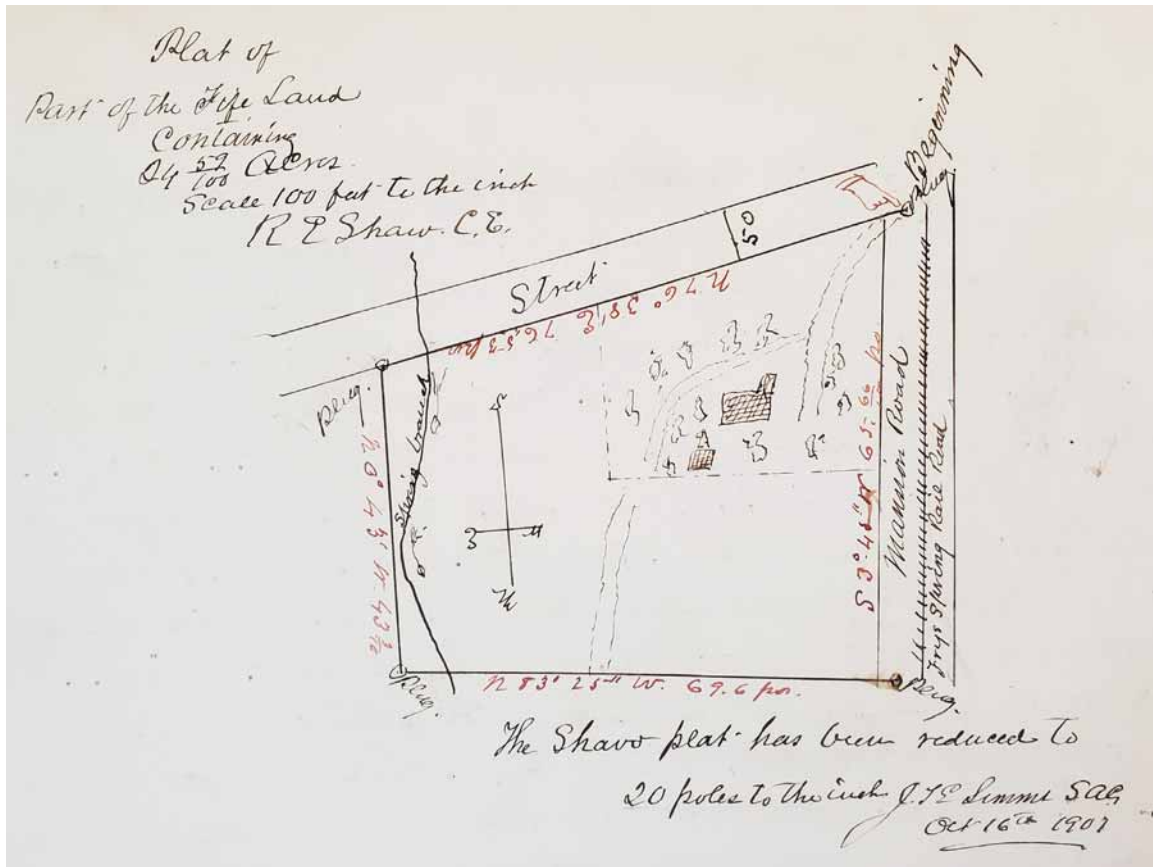 Plat of
Part of the Fife Land
Containing
24 52/100 Acres.
Scale 100 feet to the inch
R E Shaw. C. E.
Beginning
Plug.
50
Street
N 76° 38' E 76.53 po
Plug.
N 8° 43' W 43
Spring branch
S
N
S 3° 45' W 65.66 po
Mannion Road
Frys Spring Rail Road
Plug.
N 83° 25" W. 69.6 po.
Plug.
The Shaw plat has been reduced to
20 poles to the inch J. T. E Simms SAC
Oct 16th 1907